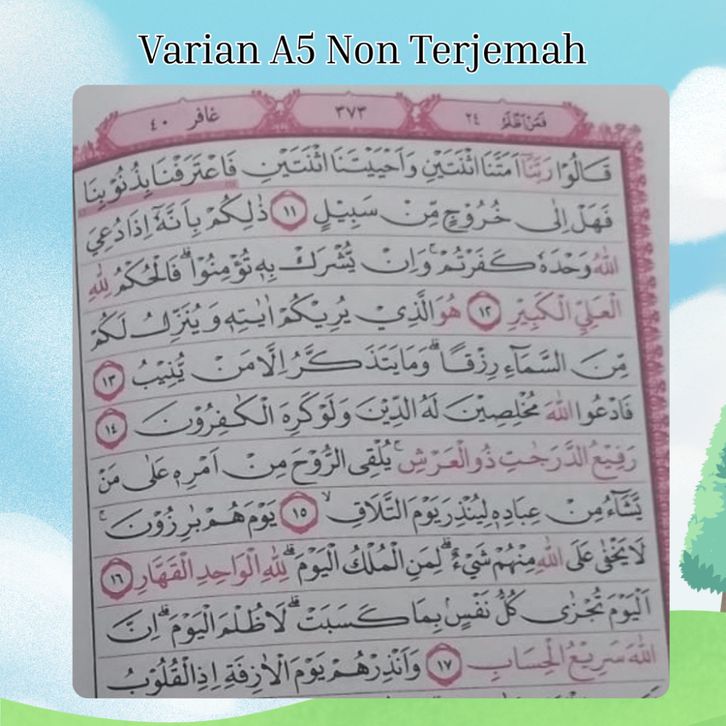 Varian A5 Non Terjemah
فمن اظلم ٢٤
٣٧٣
غافر ٤٠
قَالُوْا رَبَّنَآ اَمَتَّنَا اثْنَتَيْنِ وَاَحْيَيْتَنَا اثْنَتَيْنِ فَاعْتَرَفْنَا بِذُنُوْبِنَا
فَهَلْ اِلٰى خُرُوْجٍ مِّنْ سَبِيْلٍ ١١ ذٰلِكُمْ بِاَنَّهٗٓ اِذَا دُعِيَ
اللّٰهُ وَحْدَهٗ كَفَرْتُمْۚ وَاِنْ يُّشْرَكْ بِهٖ تُؤْمِنُوْاۗ فَالْحُكْمُ لِلّٰهِ
الْعَلِيِّ الْكَبِيْرِ ١٢ هُوَ الَّذِيْ يُرِيْكُمْ اٰيٰتِهٖ وَيُنَزِّلُ لَكُمْ
مِّنَ السَّمَاۤءِ رِزْقًاۗ وَمَا يَتَذَكَّرُ اِلَّا مَنْ يُّنِيْبُ ١٣
فَادْعُوا اللّٰهَ مُخْلِصِيْنَ لَهُ الدِّيْنَ وَلَوْ كَرِهَ الْكٰفِرُوْنَ ١٤
رَفِيْعُ الدَّرَجٰتِ ذُو الْعَرْشِۚ يُلْقِى الرُّوْحَ مِنْ اَمْرِهٖ عَلٰى مَنْ
يَّشَاۤءُ مِنْ عِبَادِهٖ لِيُنْذِرَ يَوْمَ التَّلَاقِۙ ١٥ يَوْمَ هُمْ بٰرِزُوْنَ ۚ
لَا يَخْفٰى عَلَى اللّٰهِ مِنْهُمْ شَيْءٌۗ لِمَنِ الْمُلْكُ الْيَوْمَۗ لِلّٰهِ الْوَاحِدِ الْقَهَّارِ ١٦
اَلْيَوْمَ تُجْزٰى كُلُّ نَفْسٍۢ بِمَا كَسَبَتْۗ لَا ظُلْمَ الْيَوْمَۗ اِنَّ
اللّٰهَ سَرِيْعُ الْحِسَابِ ١٧ وَاَنْذِرْهُمْ يَوْمَ الْاٰزِفَةِ اِذِ الْقُلُوْبُ